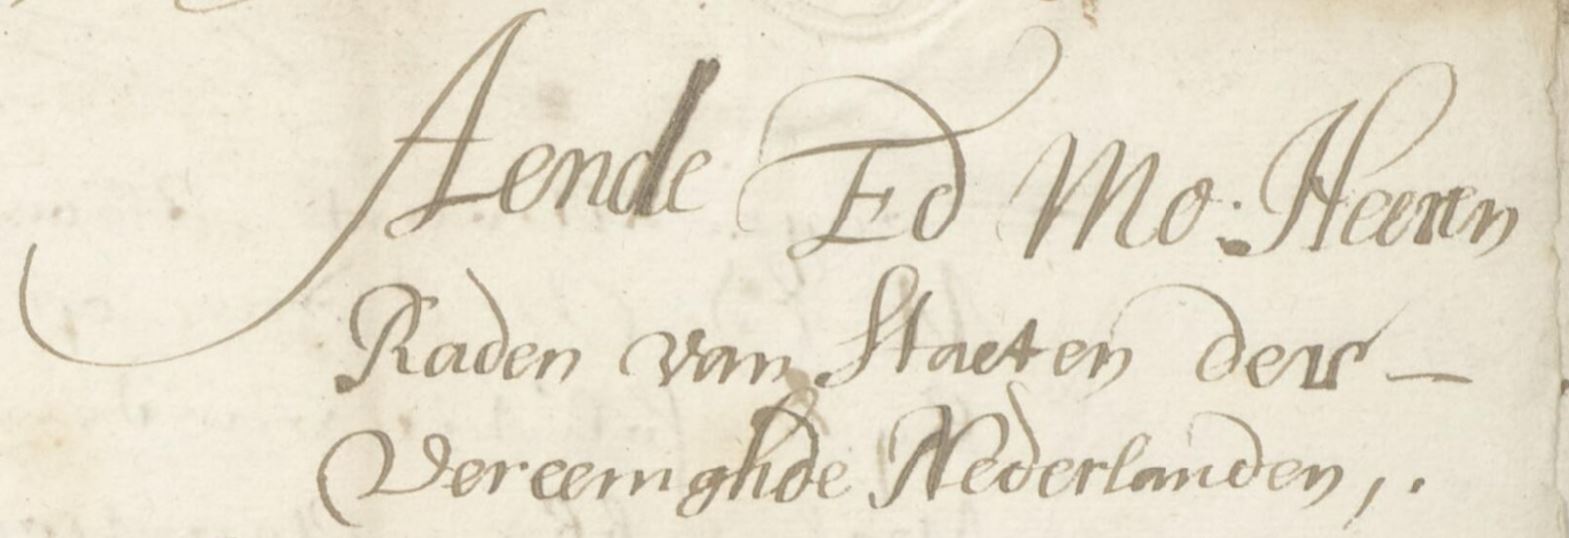 Aende Ed Mo: Heeren
Raden van Staeten der —
Vereenighde Nederlanden,.